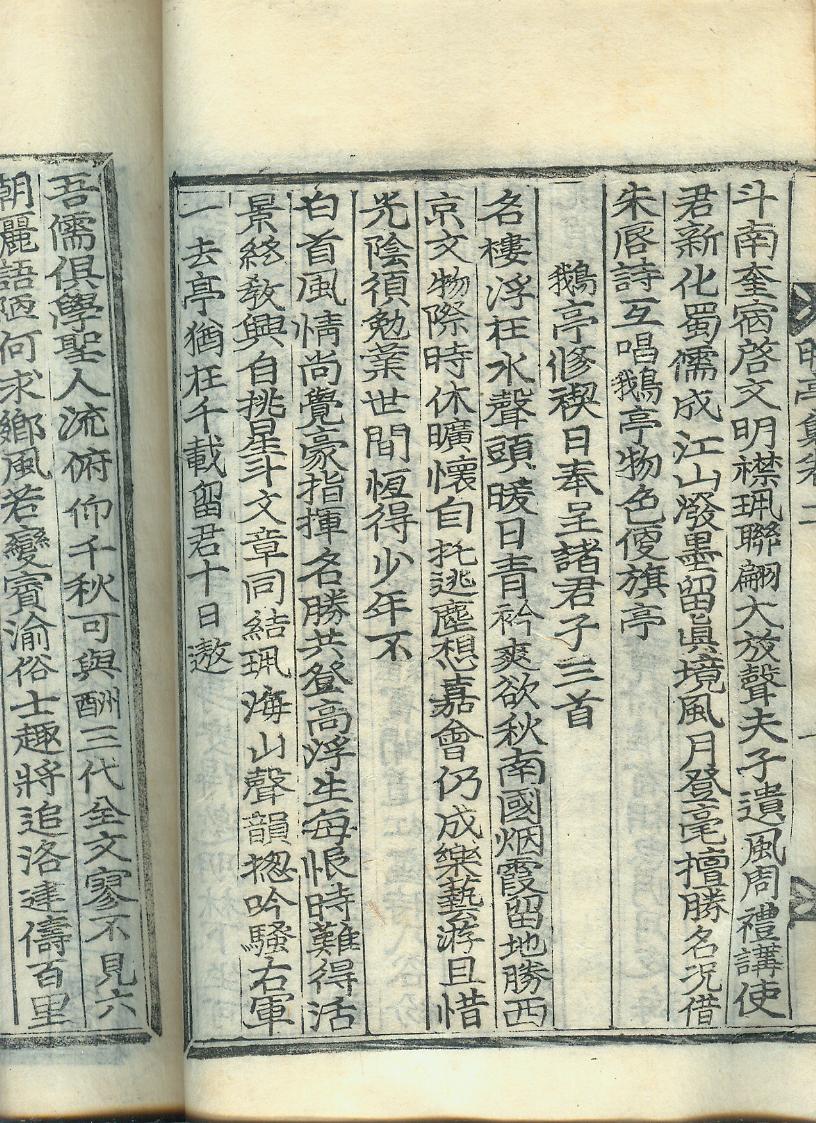 亭集卷二
斗南奎宿啓文明襟珮聯翩大放聲夫子遺風周禮講使
君新化蜀儒成江山潑墨留眞境風月登毫擅勝名况借
朱唇詩互唱鵝亭物色旗亭
鵝亭修禊日奉呈諸君子三首
名樓浮在水聲頭暖日青衿爽欲秋南國烟霞留地勝西
京文物際時休曠懷自托逃塵想嘉會仍成樂藝游且惜
光陰須勉業世間恒得少年不
白首風情尚覺豪指揮名勝共登高浮生每恨時難得活
景終教興自挑星斗文章同結珮海山聲韻揔吟騷右軍
一去亭猶在千載留君十日遨
吾儒俱學聖人流俯仰千秋可與酬三代全文寥不見六
朝麗語陋何求鄉風若變賓渝俗士趣將追洛建儔百里